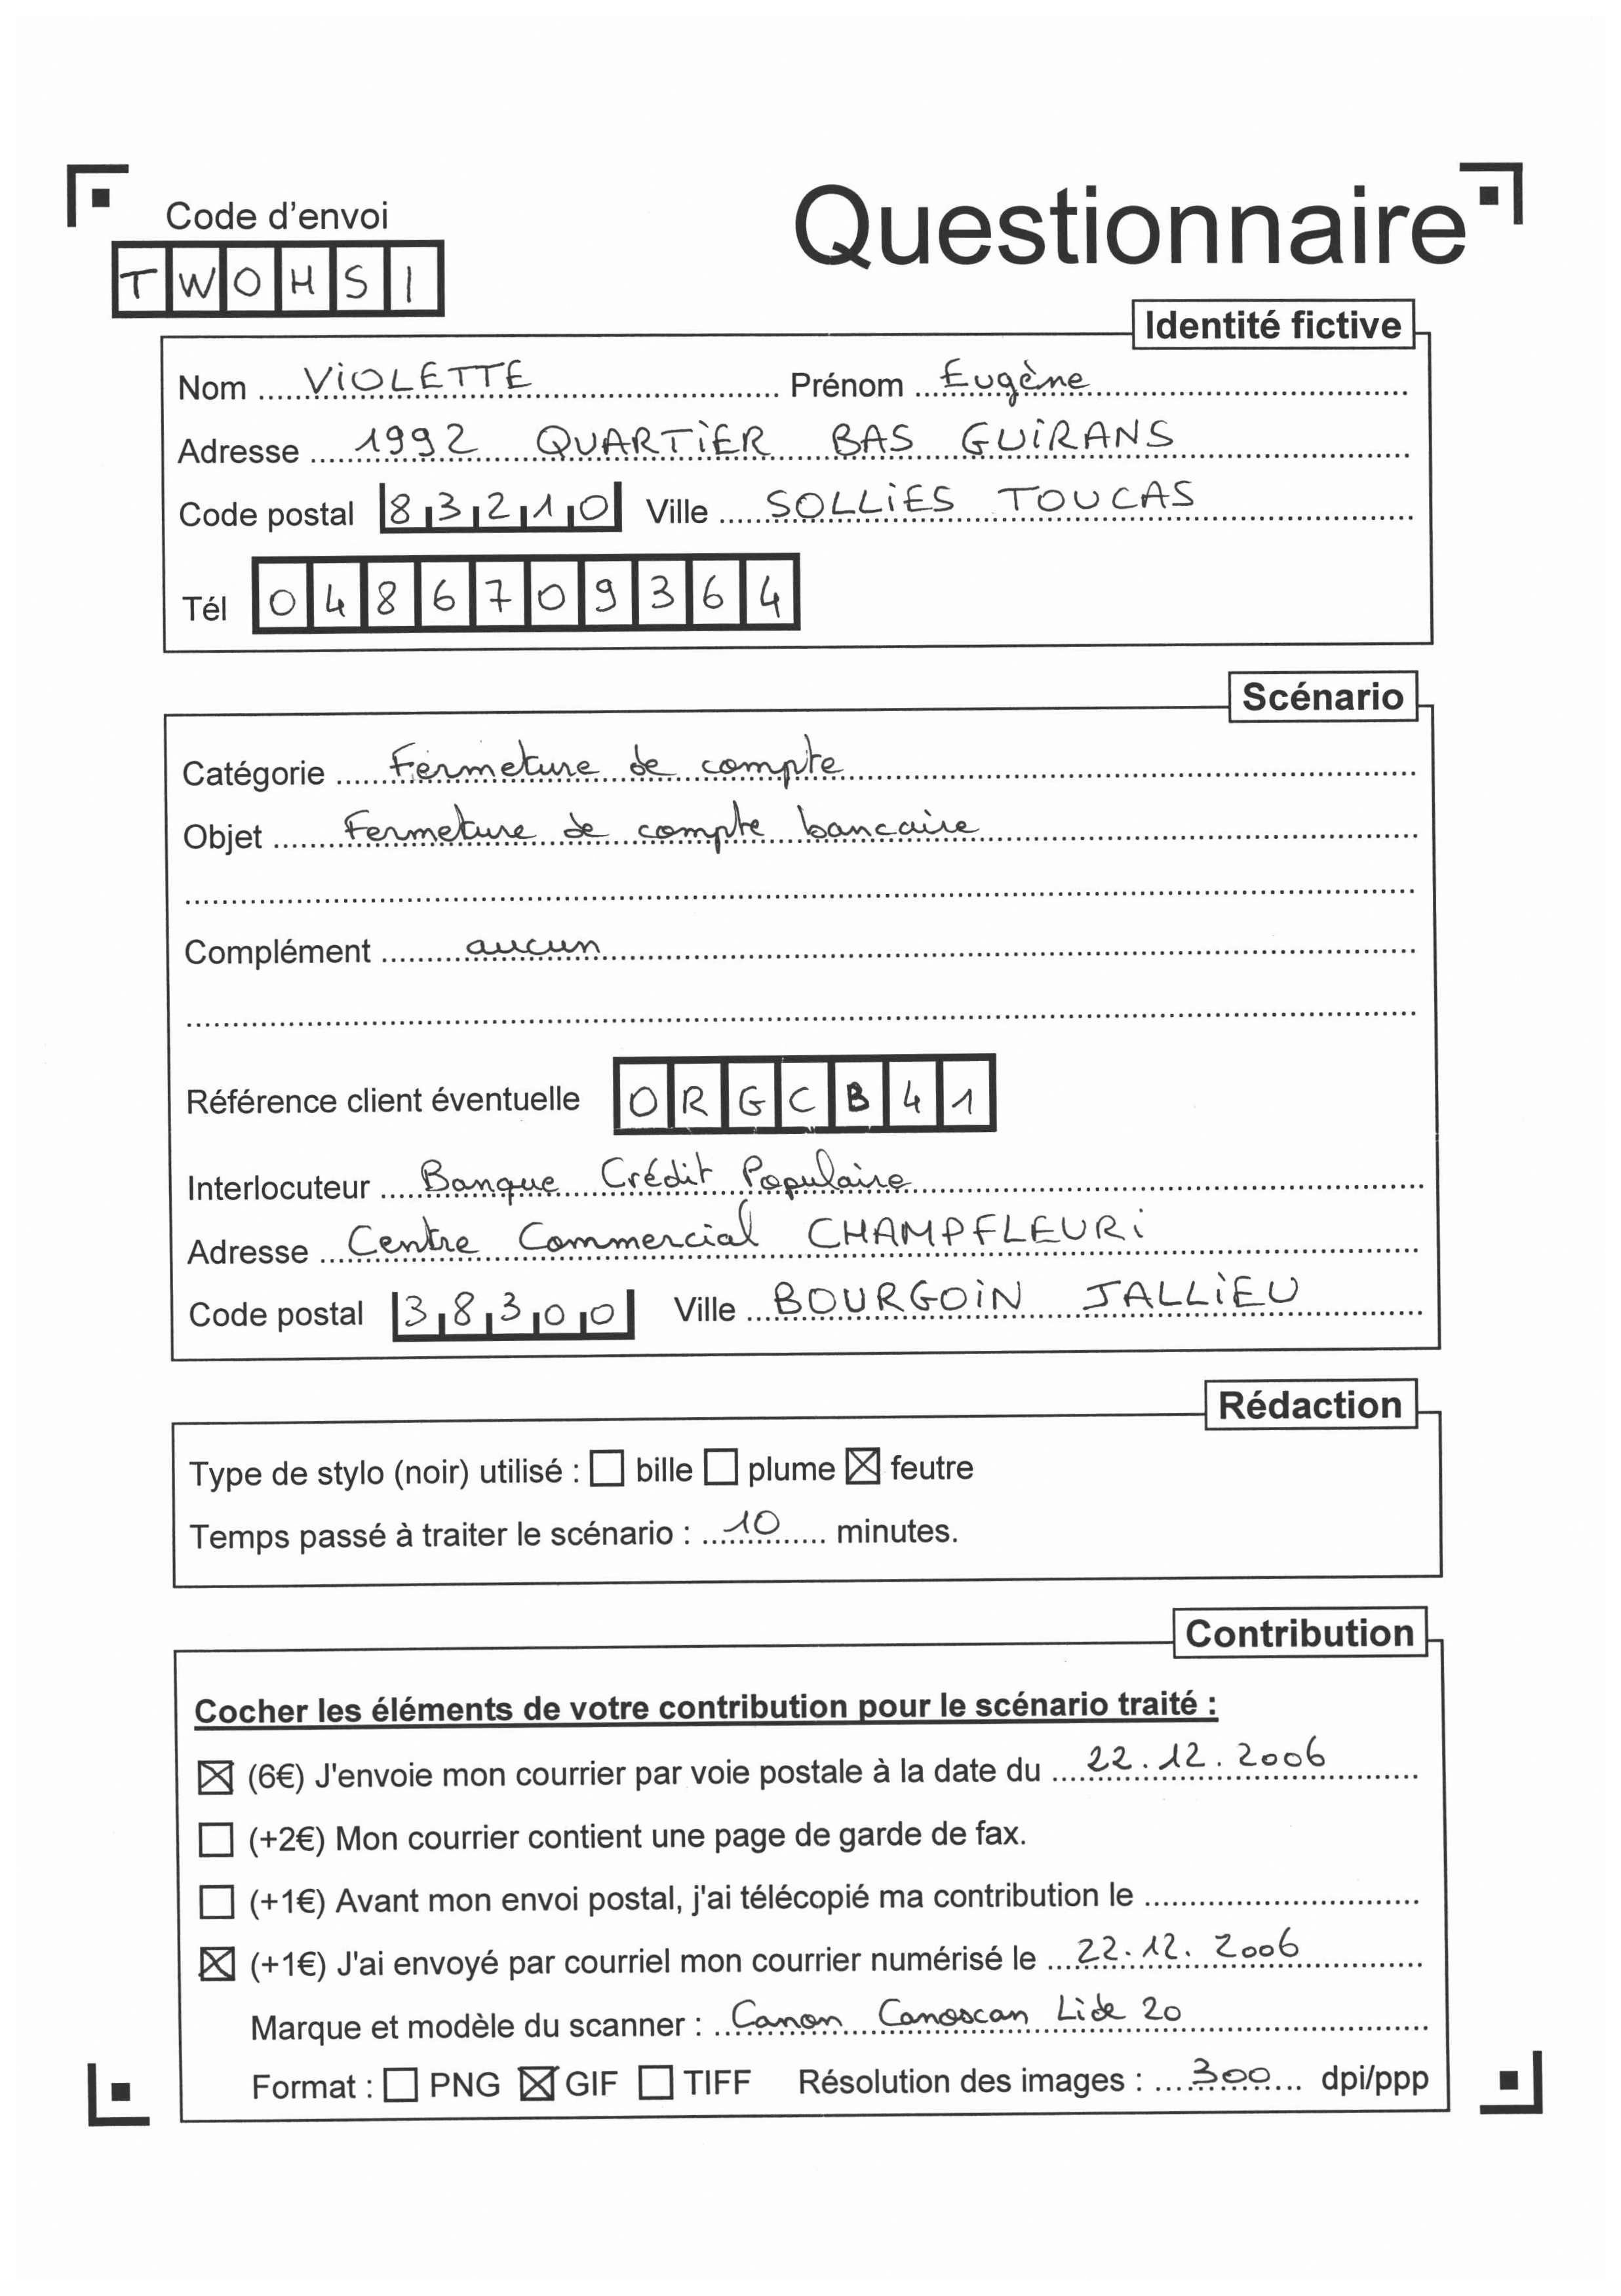 Code d'envoi
Questionnaire
TWOHSI
Identité fictive
Nom VIOLETTE Prénom Eugène
Adresse 1992 QUARTIER BAS GUIRANS
Code postal 83210 Ville SOLLIES TOUCAS
Tél 0486709364
Scénario
Catégorie Fermeture de compte
Objet Fermeture de compte bancaire
Complément aucun
Référence client éventuelle ORGCB41
Interlocuteur Banque Crédit Populaire
Adresse Centre Commercial CHAMPFLEURI
Code postal 38300 Ville BOURGOIN JALLIEU
Rédaction
Type de stylo (noir) utilisé : ☐ bille ☐ plume ☒ feutre
Temps passé à traiter le scénario : 10 minutes.
Contribution
Cocher les éléments de votre contribution pour le scénario traité :
☒ (6€) J'envoie mon courrier par voie postale à la date du 22.12.2006
☐ (+2€) Mon courrier contient une page de garde de fax.
☐ (+1€) Avant mon envoi postal, j'ai télécopié ma contribution le
☒ (+1€) J'ai envoyé par courriel mon courrier numérisé le 22.12.2006
Marque et modèle du scanner : Canon Canoscan Lide 20
Format : ☐ PNG ☒ GIF ☐ TIFF Résolution des images : 300 dpi/ppp